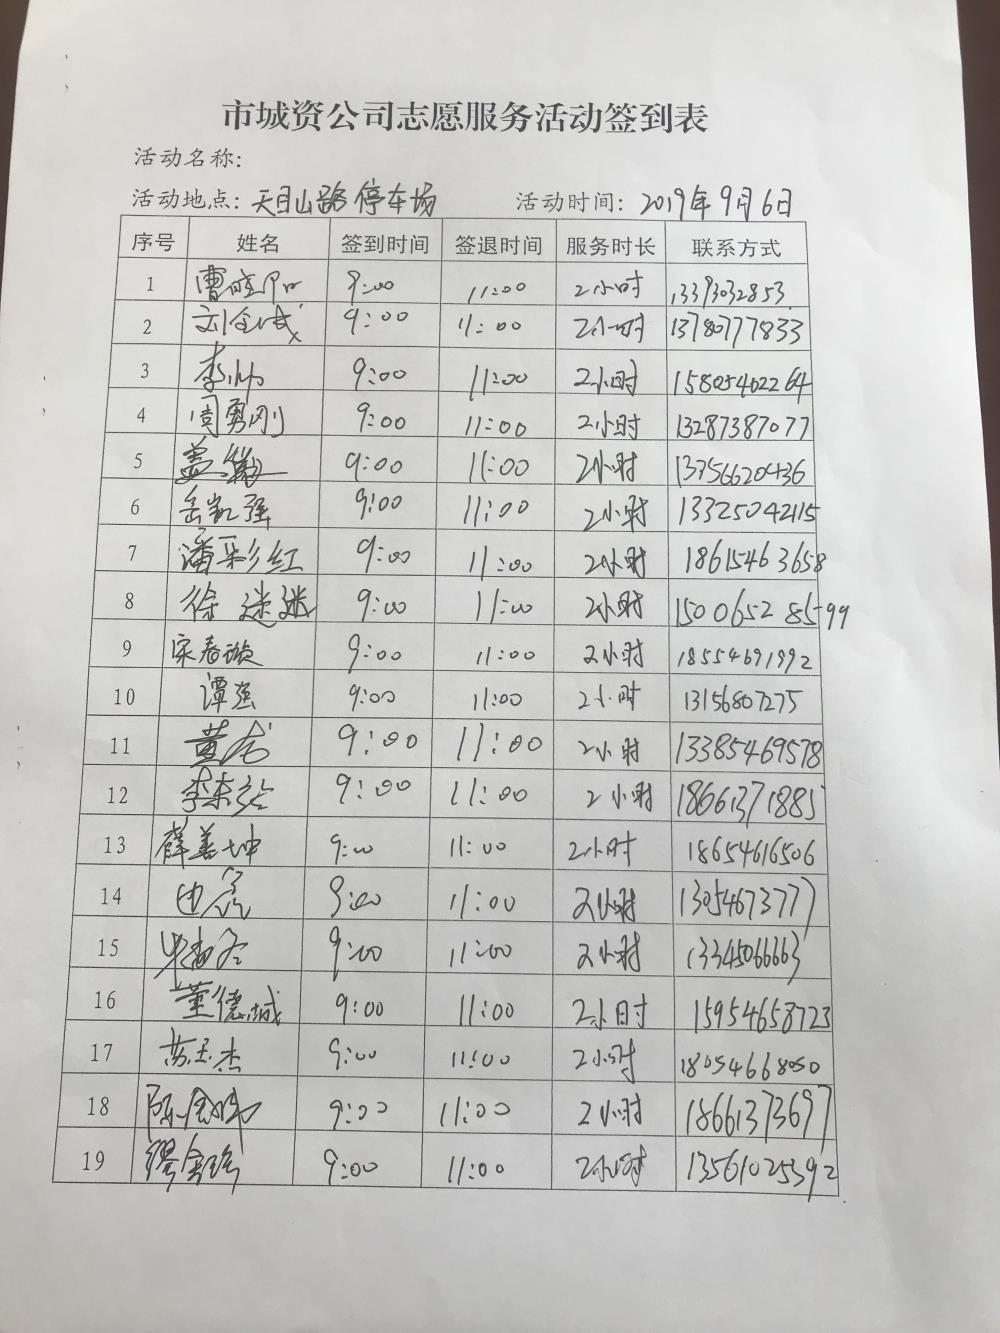 市城资公司志愿服务活动签到表
活动名称:
活动地点: 天目山路停车场 活动时间: 2019年9月6日
序号 姓名 签到时间 签退时间 服务时长 联系方式
1 9:00 11:00 2小时 13393032853
2 9:00 11:00 2小时 13780777833
3 李帅 9:00 11:00 2小时 15805402264
4 周勇刚 9:00 11:00 2小时 13287387077
5 9:00 11:00 2小时 13756620436
6 岳凯强 9:00 11:00 2小时 13325042115
7 潘彩红 9:00 11:00 2小时 18615463658
8 徐迷迷 9:00 11:00 2小时 15006528599
9 宋春璇 9:00 11:00 2小时 18554691992
10 谭强 9:00 11:00 2小时 13156807275
11 9:00 11:00 2小时 13385469578
12 9:00 11:00 2小时 18661371885
13 薛善坤 9:00 11:00 2小时 18654616506
14 9:00 11:00 2小时 13054673777
15 9:00 11:00 2小时 13345066663
16 董德城 9:00 11:00 2小时 15954658723
17 苏玉杰 9:00 11:00 2小时 18054668050
18 9:00 11:00 2小时 18661373697
19 9:00 11:00 2小时 13561025392